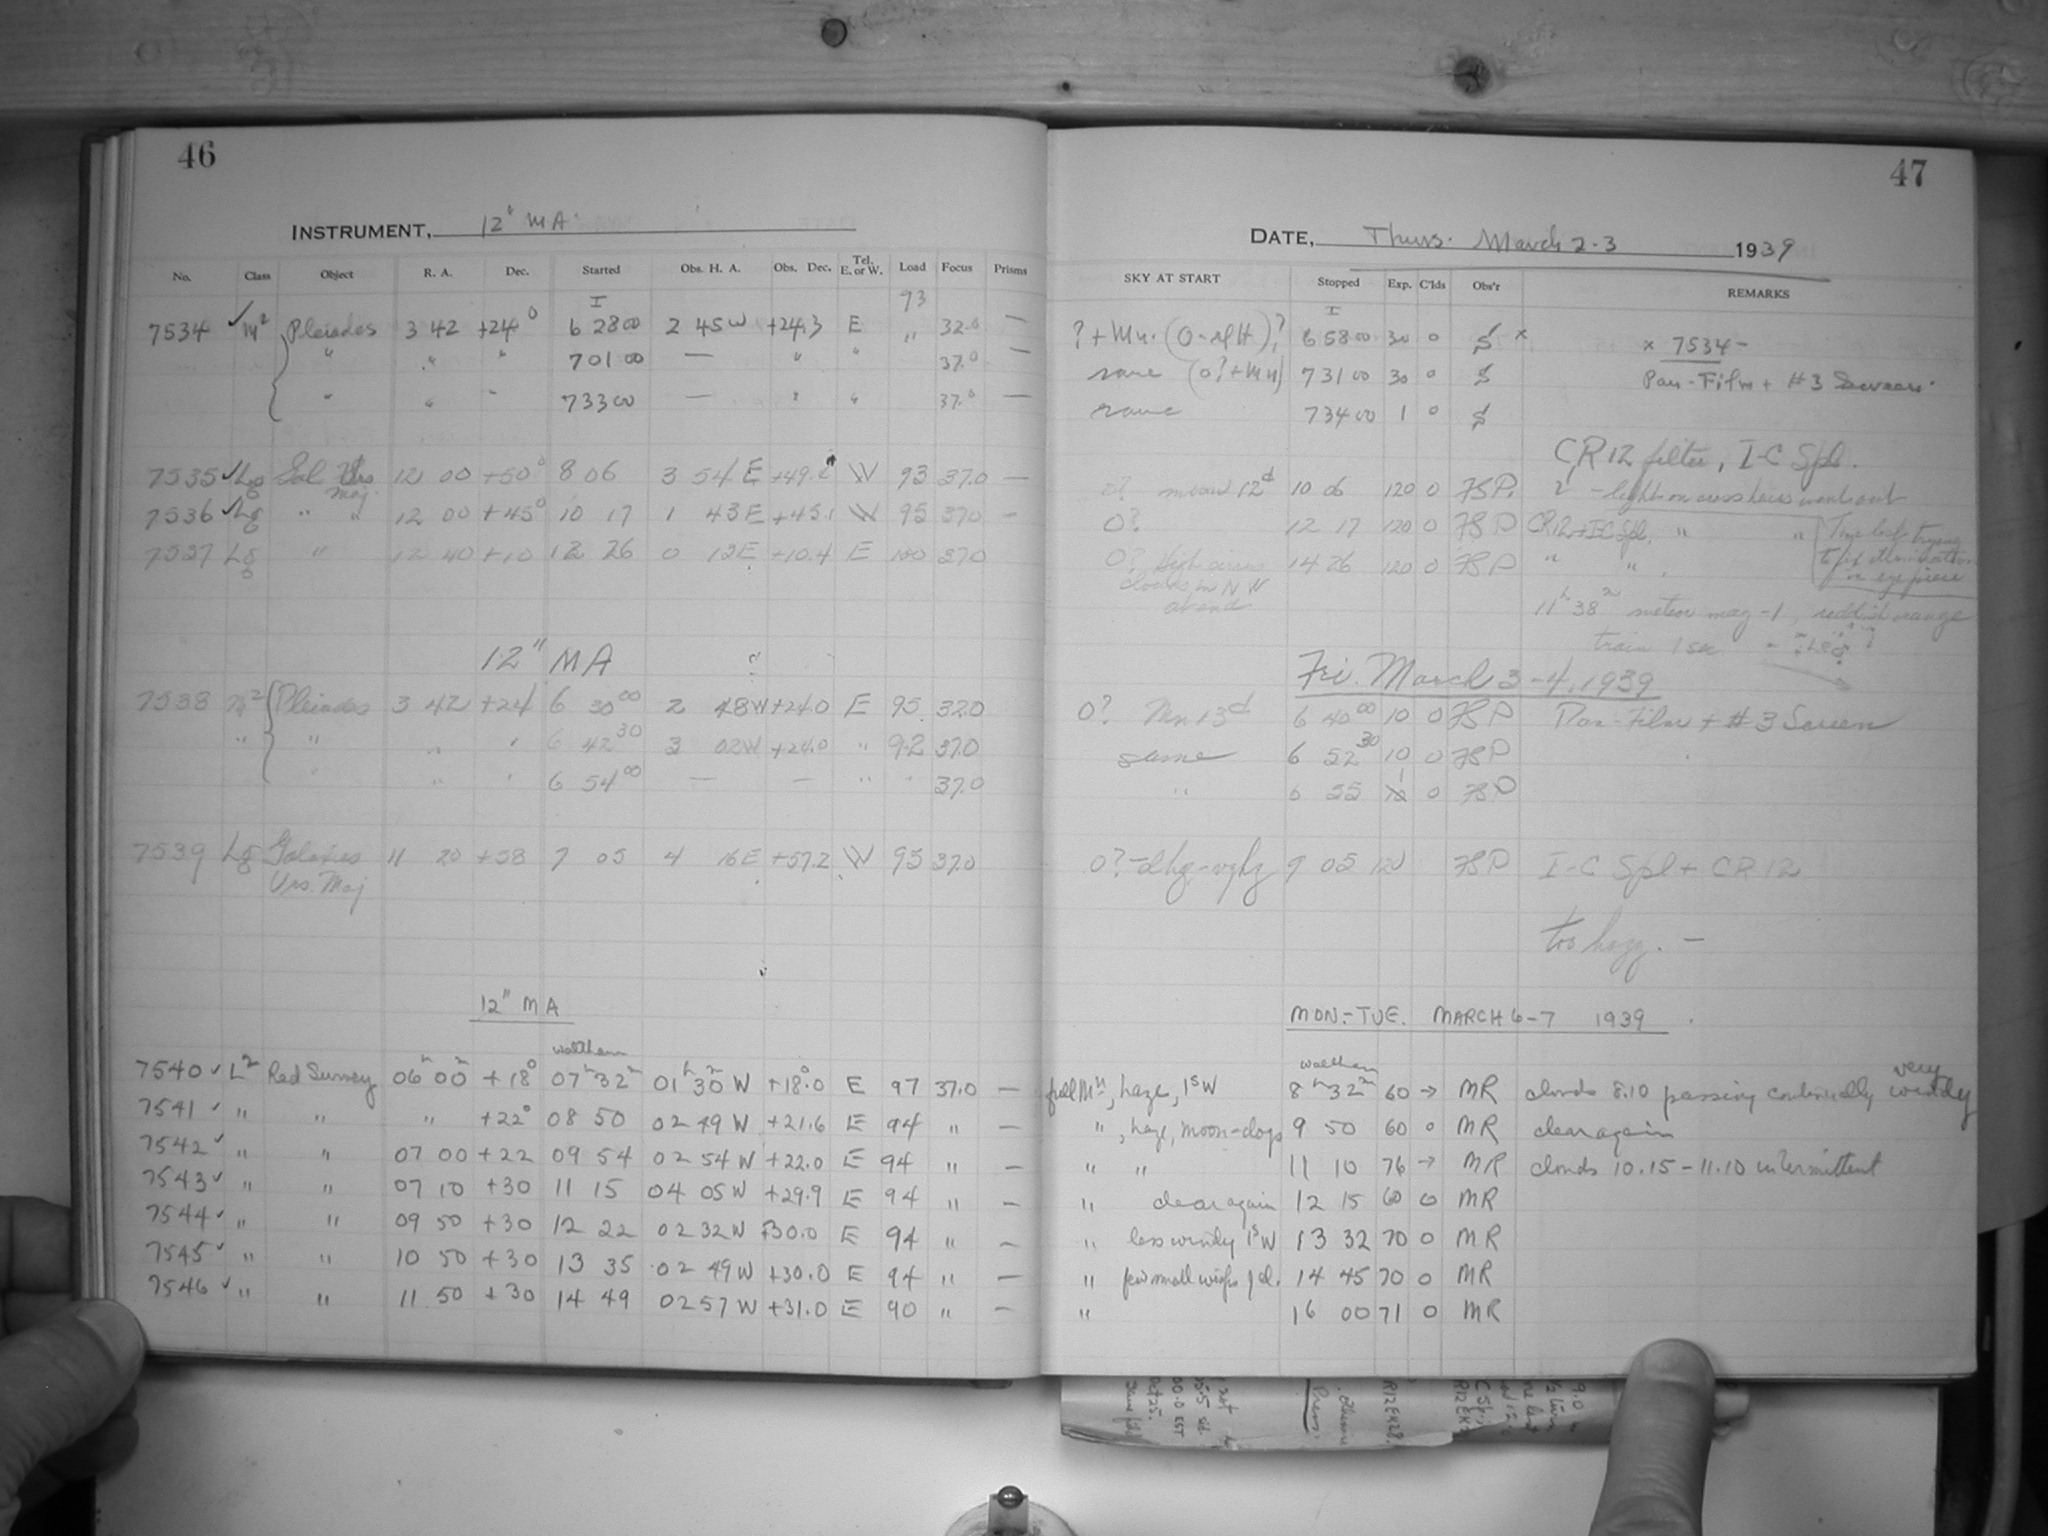 46
INSTRUMENT, 12" MA
No. Class Object R. A. Dec. Started Obs. H. A. Obs. Dec. Tel. E. or W. Load Focus Prisms
I 93
7534 ✓ M² Pleiades 3 42 +24° 6 28 00 2 45 W +24.3 E " 32.0 —
" " " 7 01 00 — " " 37.0 —
" " " 7 33 00 — " " 37.0 —
7535 ✓ Lg Gal Urs Maj. 12 00 +50° 8 06 3 54 E W 93 37.0 —
7536 ✓ Lg " " 12 00 +45° 10 17 1 43 E +45.1 W 95 37.0 —
7537 Lg " 12 40 +10 12 26 0 12 E +10.4 E 100 37.0
12" MA
7538 M² Pleiades 3 42 +24 6 30 00 2 48 W +24.0 E 95 32.0
" " " " 6 42 30 3 02 W +24.0 " 92 37.0
" " " 6 54 00 — — " " 37.0
7539 Lg Galaxies 11 20 +58 7 05 4 16 E +57.2 W 95 37.0
Urs. Maj
12" MA
Waltham
7540 ✓ L² Red Survey 06ʰ 00ᵐ +18° 07ʰ 32ᵐ 01ʰ 30ᵐ W +18.0° E 97 37.0 —
7541 ✓ " " " +22° 08 50 02 49 W +21.6 E 94 " —
7542 ✓ " " 07 00 +22 09 54 02 54 W +22.0 E 94 " —
7543 ✓ " " 07 10 +30 11 15 04 05 W +29.9 E 94 " —
7544 ✓ " " 09 50 +30 12 22 02 32 W +30.0 E 94 " —
7545 ✓ " " 10 50 +30 13 35 02 49 W +30.0 E 94 " —
7546 ✓ " " 11 50 +30 14 49 02 57 W +31.0 E 90 " —
47
DATE, Thurs. March 2-3 1939
SKY AT START Stopped Exp. C'lds Obs'r REMARKS
I
? + Mn. 6 58 00 30 0 x x 7534 —
same (0? + Mn) 7 31 00 30 0 Pan-Film + #3 Screen.
same 7 34 00 1 0
CR 12 filter, I-C Spl.
0? moon 12ᵈ 10 06 120 0 FSP. — light on cross hairs went out
0? 12 17 120 0 FSP CR12 + IC Spl. " " Time lost trying
0? High cirrus 14 26 120 0 FSP " " to fix illumination
clouds in NW in eyepiece
at end 11ʰ 38ᵐ meteor mag -1, reddish orange
train 1 sec
Fri. March 3-4, 1939
0? Mn 13ᵈ 6 40 00 10 0 FSP Pan-Film + #3 Screen
same 6 52 30 10 0 FSP
" 6 55 1 0 FSP
0? 9 05 120 FSP I-C Spl + CR 12
too hazy. —
MON.-TUE. MARCH 6-7 1939
Waltham
full Mⁿ, haze, 1ˢW 8ʰ 32ᵐ 60 → MR clouds 8.10 passing continually very windy
", haze, moon-dogs 9 50 60 0 MR clear again
" " 11 10 76 → MR clouds 10.15 – 11.10 intermittent
" clear again 12 15 60 0 MR
" less windy 1ˢW 13 32 70 0 MR
" few small wisps of cl. 14 45 70 0 MR
" 16 00 71 0 MR